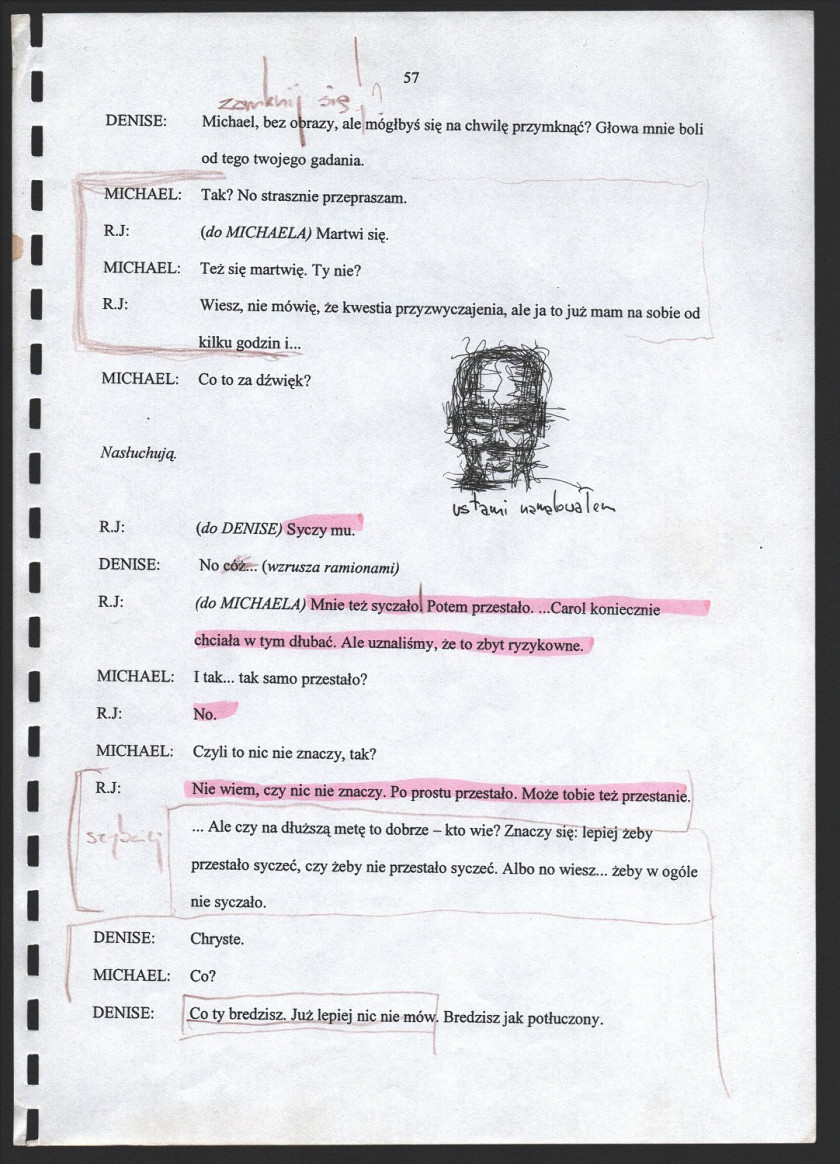 57
zamknij się!
DENISE: Michael, bez obrazy, ale mógłbyś się na chwilę przymknąć? Głowa mnie boli
od tego twojego gadania.
MICHAEL: Tak? No strasznie przepraszam.
R.J: (do MICHAELA) Martwi się.
MICHAEL: Też się martwię. Ty nie?
R.J: Wiesz, nie mówię, że kwestia przyzwyczajenia, ale ja to już mam na sobie od
kilku godzin i...
MICHAEL: Co to za dźwięk?
Nasłuchują.
ustami
R.J: (do DENISE) Syczy mu.
DENISE: No cóż... (wzrusza ramionami)
R.J: (do MICHAELA) Mnie też syczało. Potem przestało. ...Carol koniecznie
chciała w tym dłubać. Ale uznaliśmy, że to zbyt ryzykowne.
MICHAEL: I tak... tak samo przestało?
R.J: No.
MICHAEL: Czyli to nic nie znaczy, tak?
R.J: Nie wiem, czy nic nie znaczy. Po prostu przestało. Może tobie też przestanie.
... Ale czy na dłuższą metę to dobrze – kto wie? Znaczy się: lepiej żeby
szybciej
przestało syczeć, czy żeby nie przestało syczeć. Albo no wiesz... żeby w ogóle
nie syczało.
DENISE: Chryste.
MICHAEL: Co?
DENISE: Co ty bredzisz. Już lepiej nic nie mów. Bredzisz jak potłuczony.